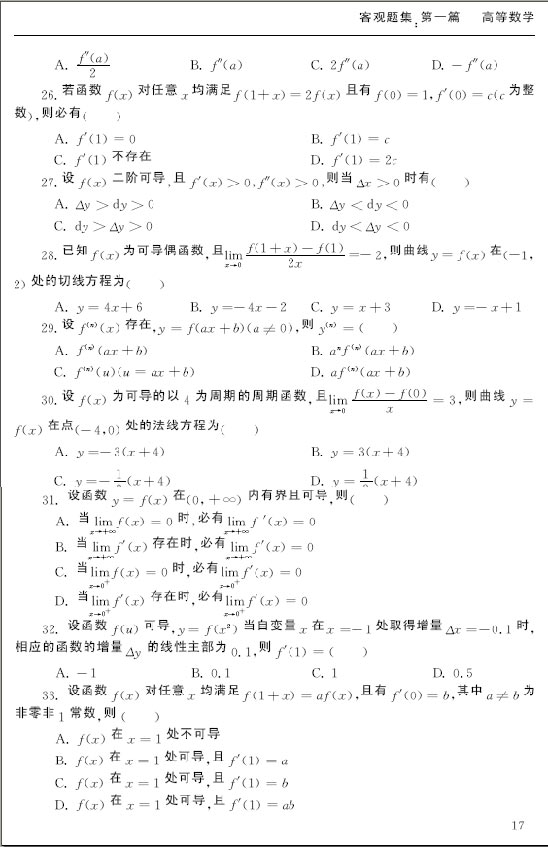 客观题集:第一篇 高等数学
A. f″(a)/2 B. f″(a) C. 2f″(a) D. －f″(a)
26. 若函数 f(x) 对任意 x 均满足 f(1＋x)＝2f(x) 且有 f(0)＝1,f′(0)＝c(c 为整
数),则必有( )
A. f′(1)＝0 B. f′(1)＝c
C. f′(1) 不存在 D. f′(1)＝2c
27. 设 f(x) 二阶可导,且 f′(x)＞0,f″(x)＞0,则当 Δx＞0 时有( )
A. Δy＞dy＞0 B. Δy＜dy＜0
C. dy＞Δy＞0 D. dy＜Δy＜0
28. 已知 f(x) 为可导偶函数,且 lim x→0 f(1＋x)－f(1)/2x ＝－2,则曲线 y＝f(x) 在(－1,
2) 处的切线方程为( )
A. y＝4x＋6 B. y＝－4x－2 C. y＝x＋3 D. y＝－x＋1
29. 设 f⁽ⁿ⁾(x) 存在,y＝f(ax＋b)(a≠0),则 y⁽ⁿ⁾＝( )
A. f⁽ⁿ⁾(ax＋b) B. aⁿf⁽ⁿ⁾(ax＋b)
C. f⁽ⁿ⁾(u)(u＝ax＋b) D. af⁽ⁿ⁾(ax＋b)
30. 设 f(x) 为可导的以 4 为周期的周期函数,且 lim x→0 f(x)－f(0)/x ＝3,则曲线 y＝
f(x) 在点(－4,0) 处的法线方程为( )
A. y＝－3(x＋4) B. y＝3(x＋4)
C. y＝－(x＋4) D. y＝(x＋4)
31. 设函数 y＝f(x) 在(0,＋∞) 内有界且可导,则( )
A. 当 lim x→＋∞ f(x)＝0 时,必有 lim x→＋∞ f′(x)＝0
B. 当 lim x→＋∞ f′(x) 存在时,必有 lim x→＋∞ f′(x)＝0
C. 当 lim x→0⁺ f(x)＝0 时,必有 lim x→0⁺ f′(x)＝0
D. 当 lim x→0⁺ f′(x) 存在时,必有 lim x→0⁺ f′(x)＝0
32. 设函数 f(u) 可导,y＝f(x²) 当自变量 x 在 x＝－1 处取得增量 Δx＝－0.1 时,
相应的函数的增量 Δy 的线性主部为 0.1,则 f′(1)＝( )
A. －1 B. 0.1 C. 1 D. 0.5
33. 设函数 f(x) 对任意 x 均满足 f(1＋x)＝af(x),且有 f′(0)＝b,其中 a≠b 为
非零非 1 常数,则( )
A. f(x) 在 x＝1 处不可导
B. f(x) 在 x＝1 处可导,且 f′(1)＝a
C. f(x) 在 x＝1 处可导,且 f′(1)＝b
D. f(x) 在 x＝1 处可导,且 f′(1)＝ab
17